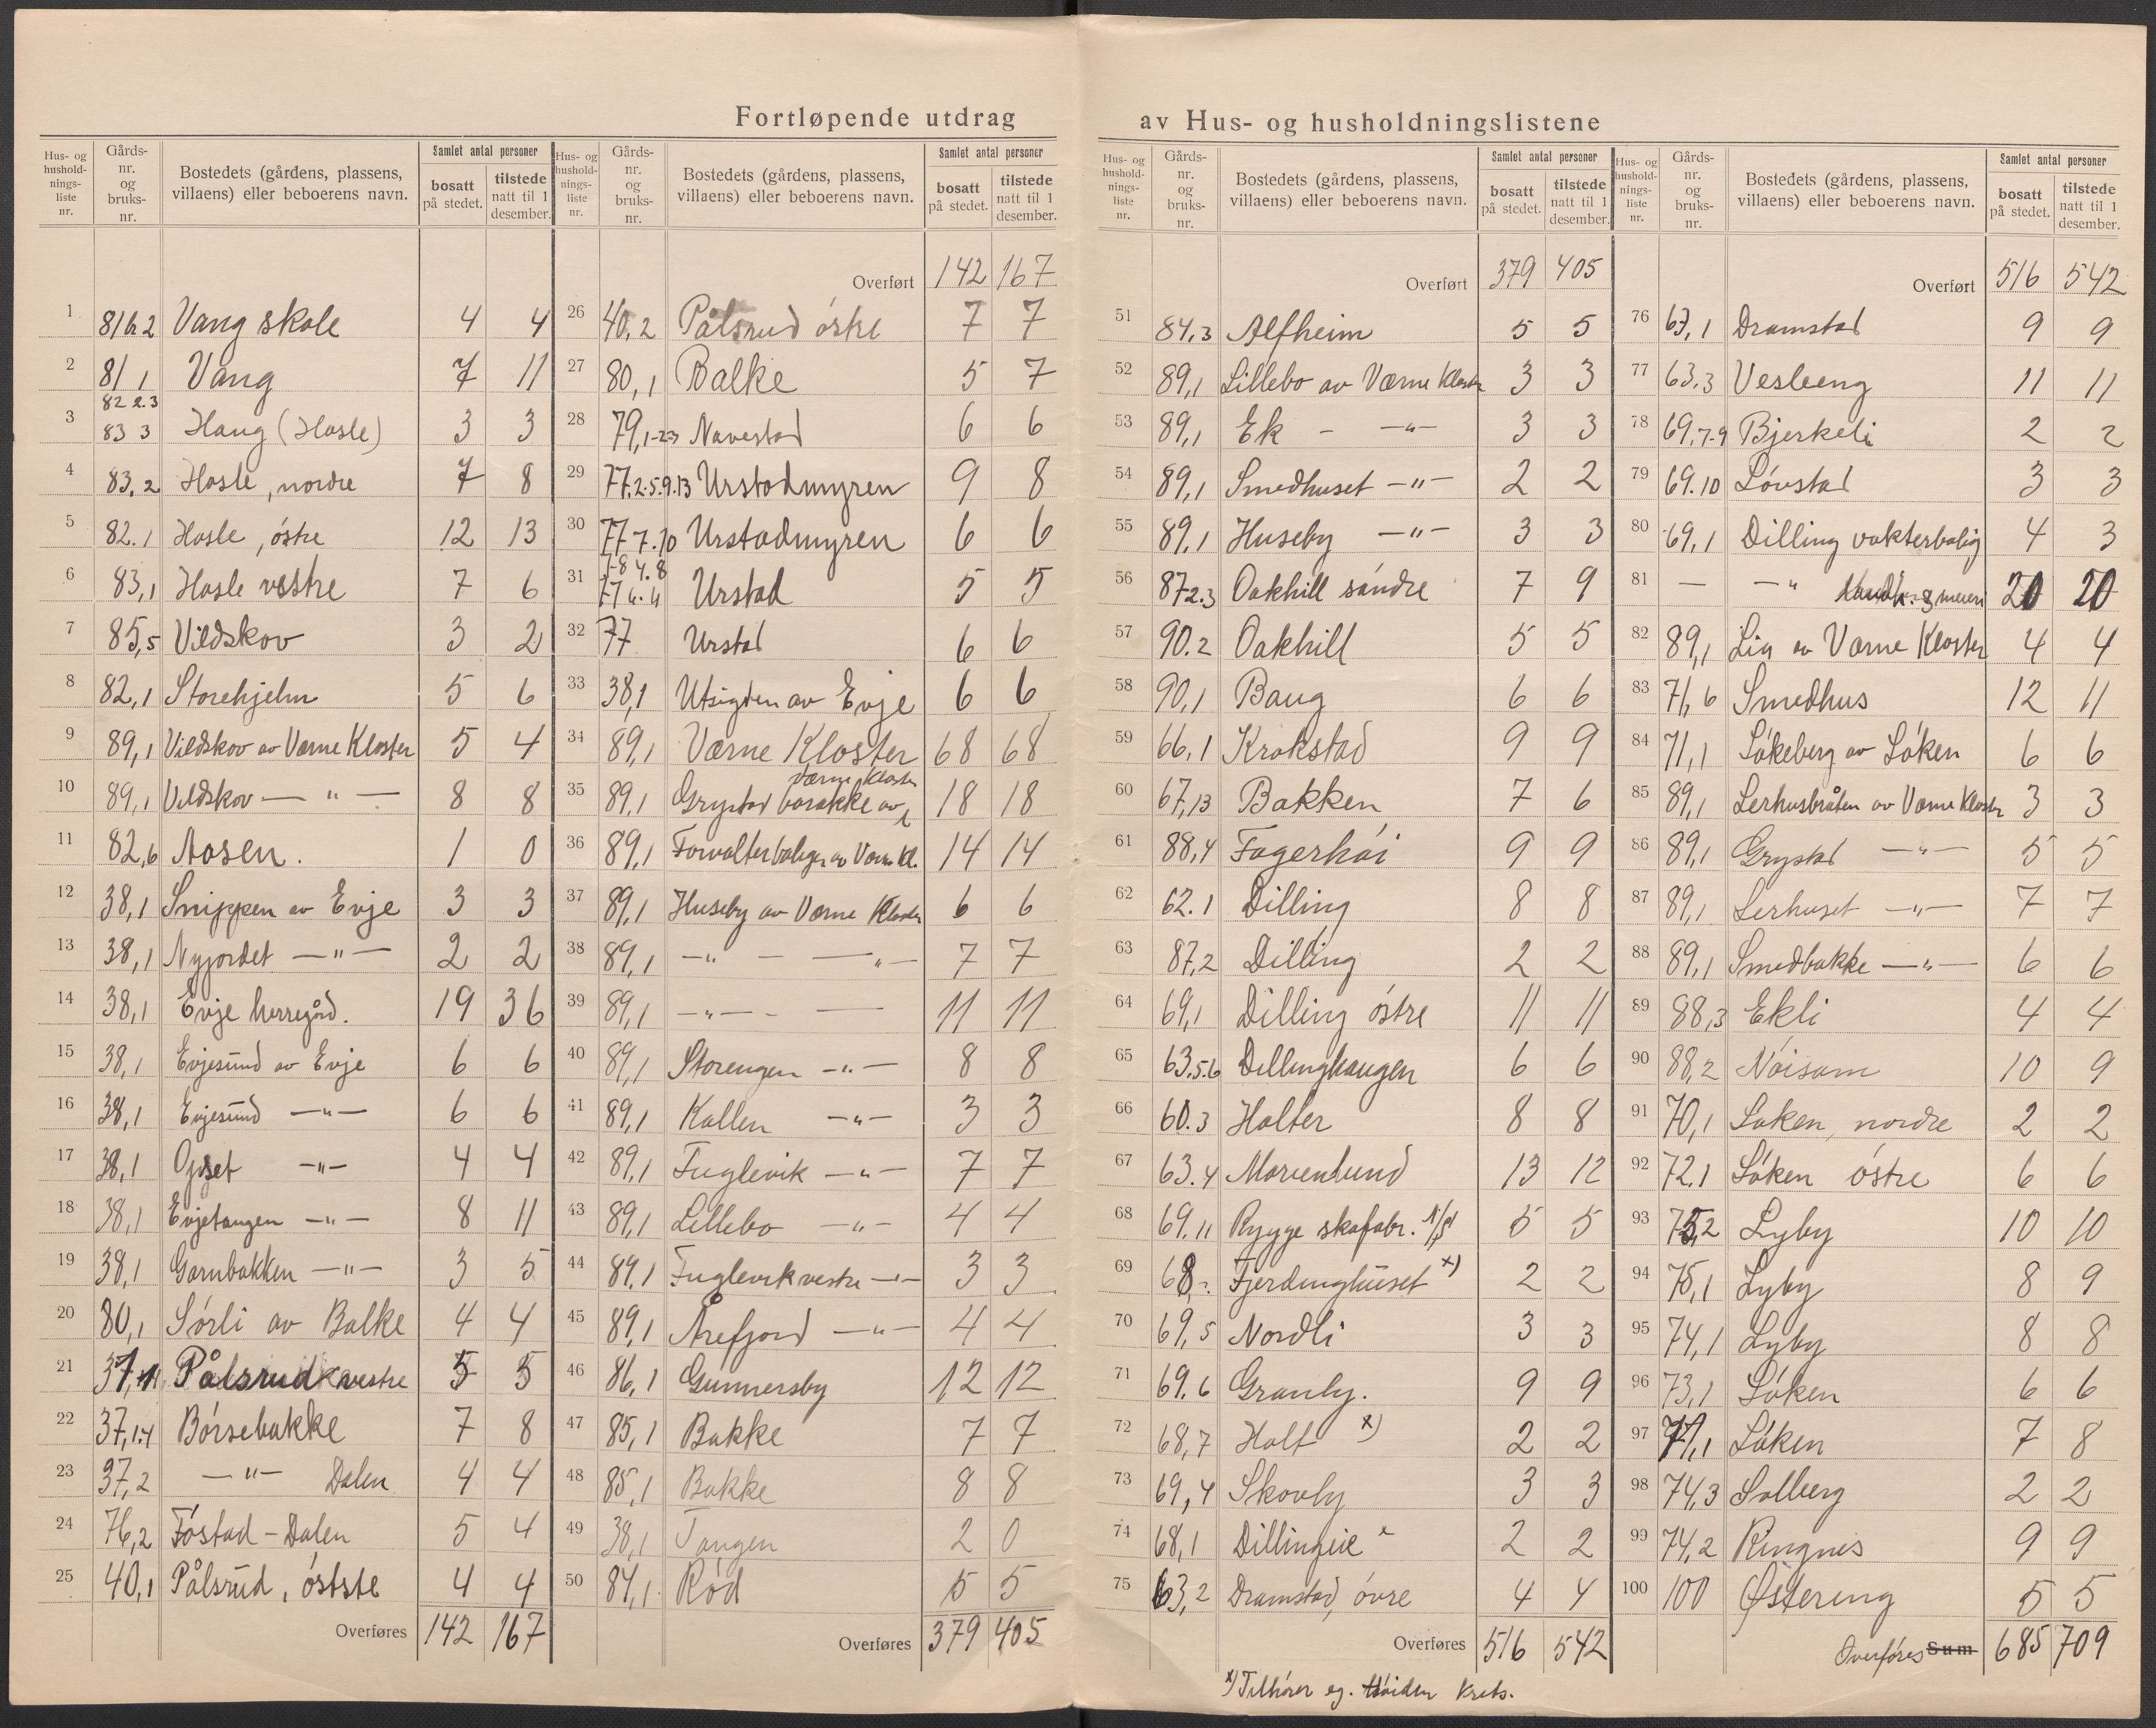 Fortløpende utdrag av Hus- og husholdningslistene
Hus- og hushold-nings-liste nr. Gårds-nr. og bruks-nr. Bostedets (gårdens, plassens, villaens) eller beboerens navn. Samlet antal personer bosatt på stedet. tilstede natt til 1 desember.
1 81 6.2 Vang skole 4 4
2 81 1 Vang 7 11
82 2.3
3 83 3 Haug (Hasle) 3 3
4 83,2 Hasle, nordre 7 8
5 82.1 Hasle, østre 12 13
6 83,1 Hasle vestre 7 6
7 85,5 Vildskov 3 2
8 82,1 Storehjelm 5 6
9 89,1 Vildskov av Værne Kloster 5 4
10 89,1 Vildskov — " — 8 8
11 82,6 Aasen. 1 0
12 38,1 Snippen av Evje 3 3
13 38,1 Nyjordet — " — 2 2
14 38,1 Evje herregård. 19 36
15 38,1 Evjesund av Evje 6 6
16 38,1 Evjesund — " — 6 6
17 38,1 Opset — " — 4 4
18 38,1 Evjetangen — " — 8 11
19 38,1 Garnbakken — " — 3 5
20 80,1 Sørli av Balke 4 4
21 Pålsrud vestre 5 5
22 37,1.4 Børsebakke 7 8
23 37,2 — " — Dalen 4 4
24 76,2 Føstad - Dalen 5 4
25 40,1 Pålsrud, østste 4 4
Overføres 142 167
Hus- og hushold-nings-liste nr. Gårds-nr. og bruks-nr. Bostedets (gårdens, plassens, villaens) eller beboerens navn. Samlet antal personer bosatt på stedet. tilstede natt til 1 desember.
Overført 142 167
26 40,2 Pålsrud østre 7 7
27 80,1 Balke 5 7
28 79,1-2-3 Navestad 6 6
29 77,2.5.9.13 Urstadmyren 9 8
30 77 7.10 Urstadmyren 6 6
31 Urstad 5 5
32 77 Urstad 6 6
33 38,1 Utsigten av Evje 6 6
34 89,1 Værne Kloster 68 68
35 89,1 Grystad barakke av Værne Kloster 18 18
36 89,1 Forvalterboligen av Værne Kl. 14 14
37 89,1 Huseby av Værne Kloster 6 6
38 89,1 — " — — " — 7 7
39 89,1 — " — - — 11 11
40 89,1 Storengen — " — 8 8
41 89,1 Kallen — " — 3 3
42 89,1 Fuglevik — " — 7 7
43 89,1 Lillebo — " — 4 4
44 89,1 Fuglevik vestre — " — 3 3
45 89,1 Årefjord — " — 4 4
46 86,1 Gunnersby 12 12
47 85,1 Bakke 7 7
48 85,1 Bakke 8 8
49 38,1 Tangen 2 0
50 84,1 Rød 5 5
Overføres 379 405
Hus- og hushold-nings-liste nr. Gårds-nr. og bruks-nr. Bostedets (gårdens, plassens, villaens) eller beboerens navn. Samlet antal personer bosatt på stedet. tilstede natt til 1 desember.
Overført 379 405
51 84,3 Alfheim 5 5
52 89,1 Lillebo av Værne Kloster 3 3
53 89,1 Ek - — " — 3 3
54 89,1 Smedhuset — " — 2 2
55 89,1 Huseby — " — 3 3
56 87 2.3 Oakhill søndre 7 9
57 90.2 Oakhill 5 5
58 90,1 Baug 6 6
59 66,1 Krokstad 9 9
60 67,13 Bakken 7 6
61 88,4 Fagerhøi 9 9
62 62.1 Dilling 8 8
63 87,2 Dilling 2 2
64 69,1 Dilling østre 11 11
65 63.5.6 Dillinghaugen 6 6
66 60.3 Halter 8 8
67 63.4 Marienlund 13 12
68 69.11 Rygge skofabr. 5 5
69 68,- Fjerdinghuset x) 2 2
70 69,5 Nordli 3 3
71 69.6 Granly. 9 9
72 68,7 Holt x) 2 2
73 69,4 Skovly 3 3
74 68,1 Dillingeie x 2 2
75 63,2 Dramstad, øvre 4 4
Overføres 516 542
x) Tilhører eg. Høiden Krets.
Hus- og hushold-nings-liste nr. Gårds-nr. og bruks-nr. Bostedets (gårdens, plassens, villaens) eller beboerens navn. Samlet antal personer bosatt på stedet. tilstede natt til 1 desember.
Overført 516 542
76 63,1 Dramstad 9 9
77 63.3 Vesleeng 11 11
78 69,7-9 Bjerkeli 2 2
79 69.10 Løvstad 3 3
80 69,1 Dilling vokterbolig 4 3
81 — — " meieri 20 20
82 89,1 Lia av Værne Kloster 4 4
83 71,6 Smedhus 12 11
84 71,1 Løkeberg av Løken 6 6
85 89,1 Lerhusbråten av Værne Kloster 3 3
86 89,1 Grystad — " — 5 5
87 89,1 Lerhuset — " — 7 7
88 89,1 Smedbakke — " — 6 6
89 88,3 Ekli 4 4
90 88,2 Nøisom 10 9
91 70,1 Løken, nordre 2 2
92 72.1 Løken østre 6 6
93 75,2 Lyby 10 10
94 75,1 Lyby 8 9
95 74,1 Lyby 8 8
96 73,1 Løken 6 6
97 71,1 Løken 7 8
98 74,3 Solberg 2 2
99 74,2 Ringnes 9 9
100 100 Østereng 5 5
Overføres Sum 685 709